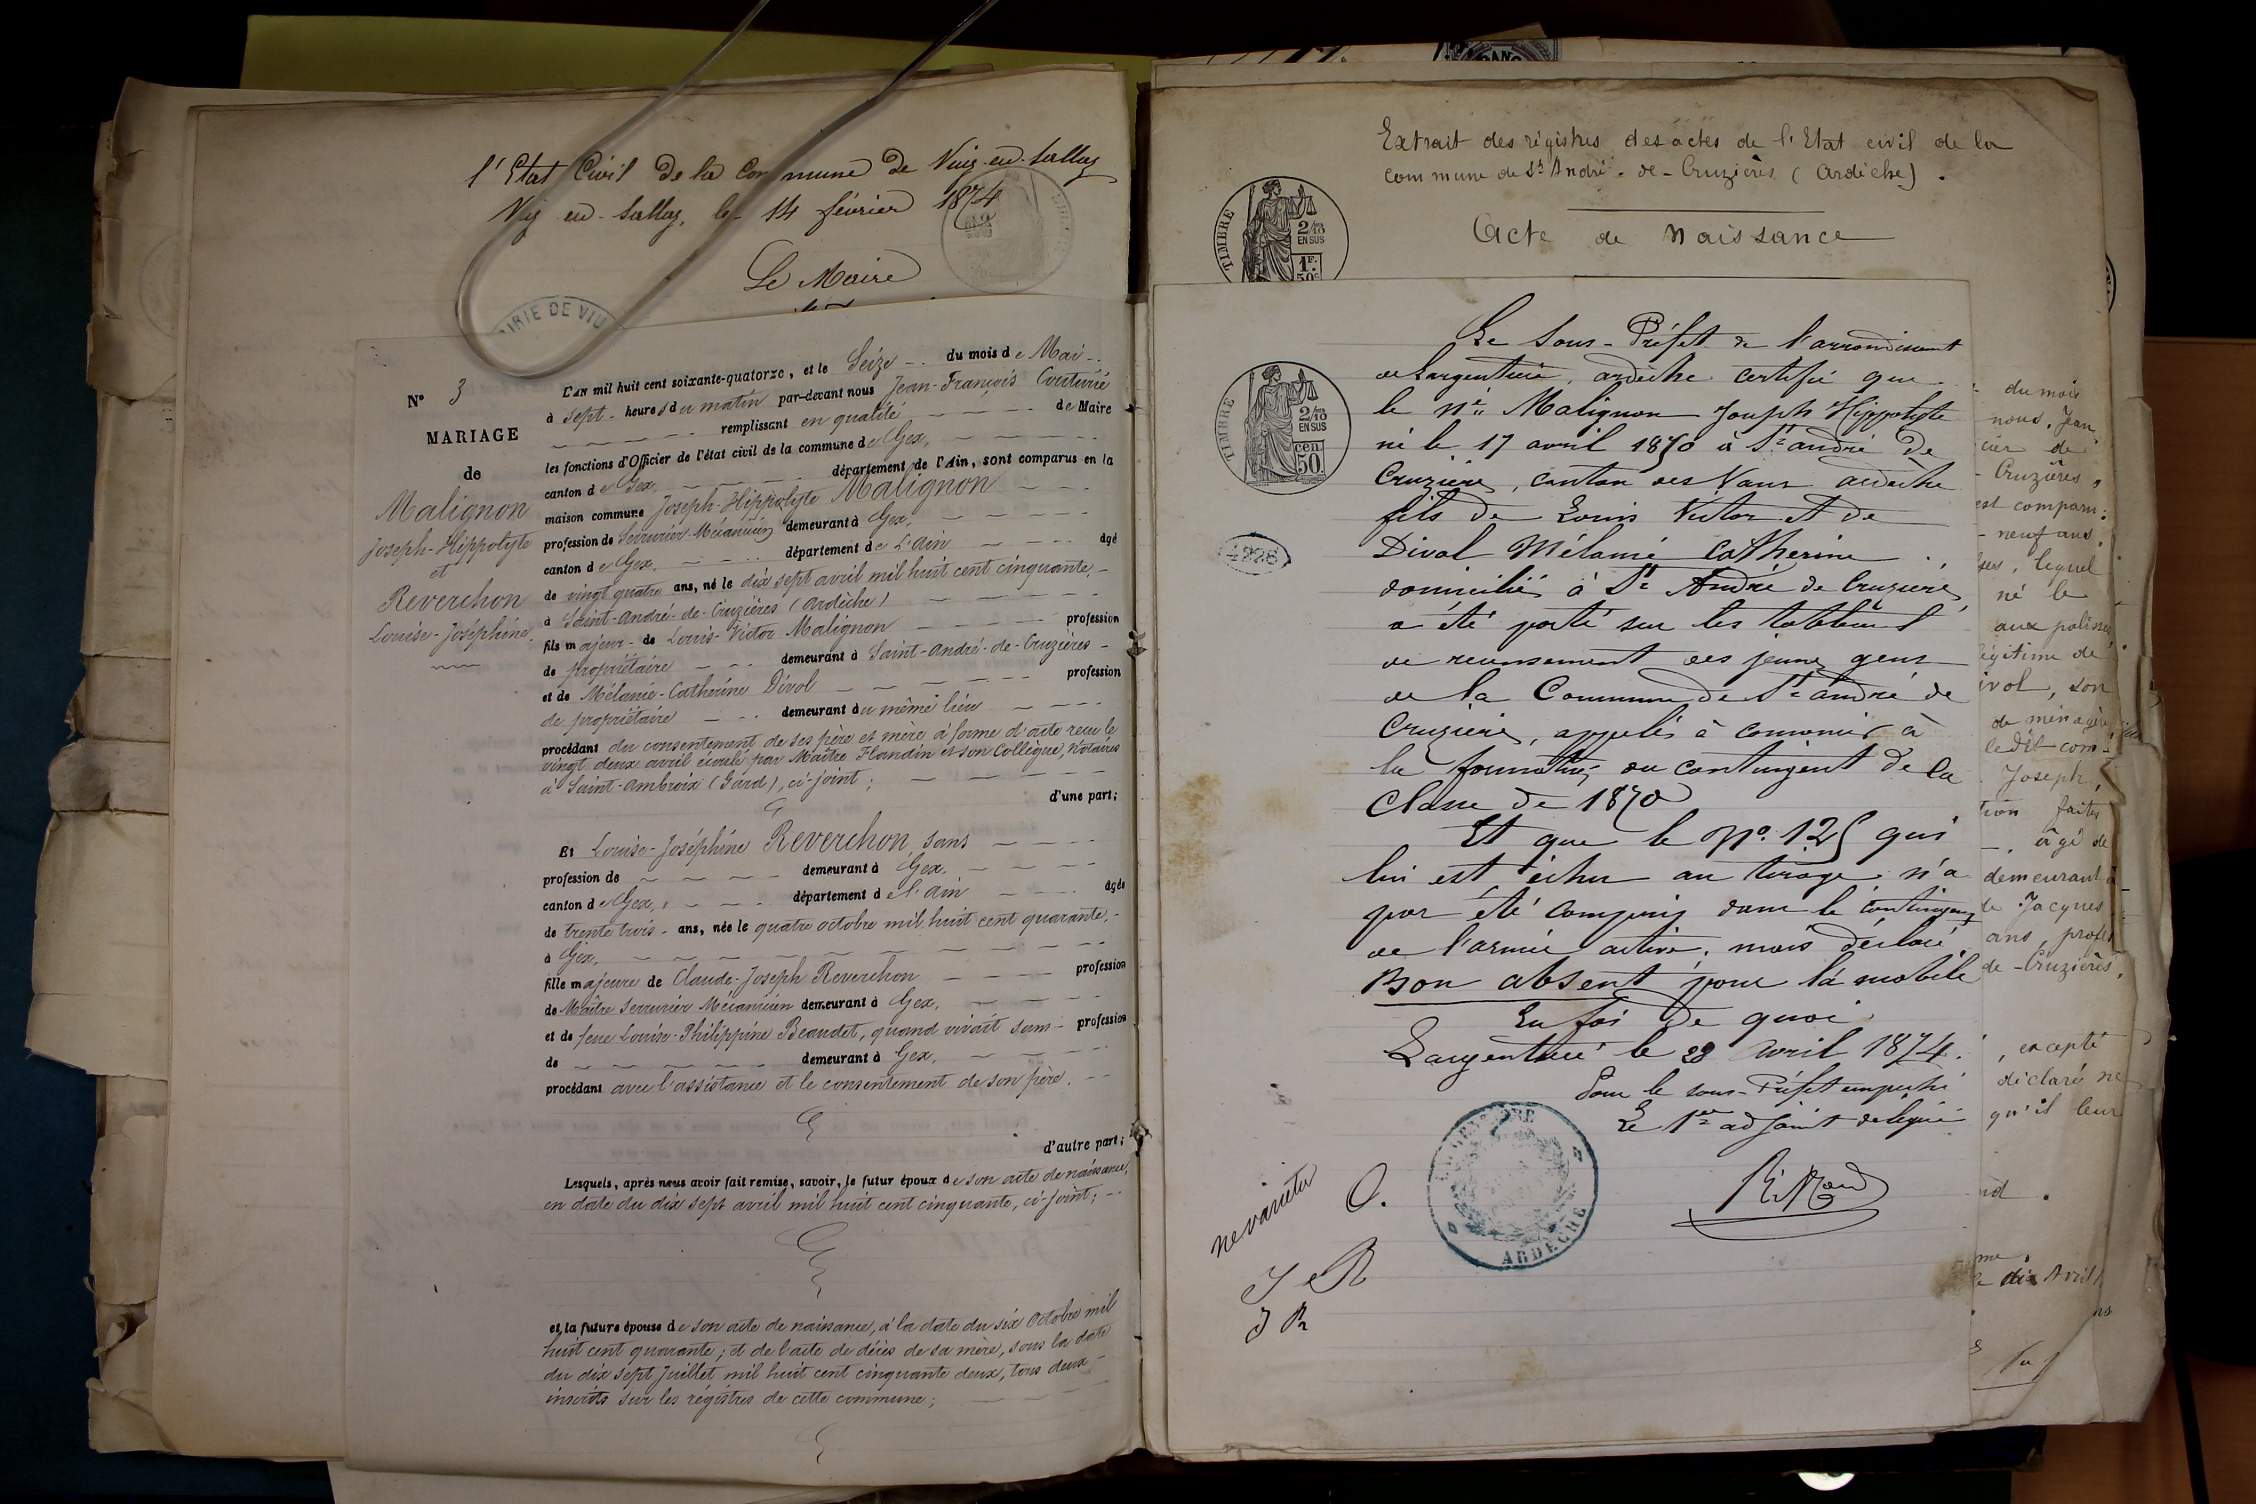 l'Etat Civil de la commune de Viuz-en-Sallaz
Viuz-en-Sallaz, le 14 février 1874
Le Maire
MAIRIE DE VIU
N° 3
MARIAGE
de
Malignon
Joseph-Hippolyte
et
Reverchon
Louise-Joséphine.
L'AN mil huit cent soixante-quatorze, et le Seize du mois de Mai
à sept heures du matin par-devant nous Jean-François Couturié
remplissant en qualité de Maire
les fonctions d'Officier de l'état civil de la commune de Gex,
canton de Gex, département de l'Ain, sont comparus en la
maison commune Joseph-Hippolyte Malignon
profession de Serrurier-Mécanicien demeurant à Gex,
canton de Gex, département de L'Ain âgé
de vingt quatre ans, né le dix sept avril mil huit cent cinquante,
à Saint-André-de-Cruzières (Ardèche)
fils majeur de Louis-Victor Malignon profession
de propriétaire demeurant à Saint-André-de-Cruzières
et de Mélanie-Catherine Divol profession
de propriétaire demeurant du même lieu
procédant du consentement de ses père et mère à forme d'acte reçu le
vingt deux avril écoulé par Maître Flandin et son Collègue, Notaires
à Saint-Ambroix (Gard), ci-joint;
d'une part;
Et Louise-Joséphine Reverchon, sans
profession de demeurant à Gex.
canton de Gex, département de l'Ain âgée
de trente trois ans, née le quatre octobre mil huit cent quarante,
à Gex,
fille majeure de Claude-Joseph Reverchon profession
de Maître Serrurier Mécanicien demeurant à Gex,
et de feue Louise-Philippine Beaudet, quand vivait sans profession
de demeurant à Gex,
procédant avec l'assistance et le consentement de son père.
d'autre part;
Lesquels, après nous avoir fait remise, savoir, le futur époux de son acte de naissance,
en date du dix sept avril mil huit cent cinquante, ci-joint;
et, la future épouse de son acte de naissance, à la date du six Octobre mil
huit cent quarante; et de l'acte de décès de sa mère, sous la date
du dix sept Juillet mil huit cent cinquante deux, tous deux
inscrits sur les régistres de cette commune;
Extrait des régistres des actes de l'Etat civil de la
commune de St André-de-Cruzières (Ardèche).
Acte de Naissance
TIMBRE
2/10
EN SUS
1F.
50c
Le Sous-Préfet de l'arrondissement
de Largentière, ardèche certifie que
le né Malignon Joseph Hippolyte
né le 17 avril 1850 à St André de
Cruzières, canton des Vans ardèche
fils de Louis Victor et de
Divol Mélanie Catherine
domiciliés à St André de Cruzières
a été porté sur les tableaux
de recensement des jeunes gens
de la Commune de St André de
Cruzières, appelés à concourir à
la formation du contingent de la
Classe de 1870
Et que le No. 125 qui
lui est échu au tirage n'a
pas été compris dans le contingent
de l'armée active, mais déclaré
Bon absent pour la mobile
En foi de quoi
Largentière le 28 Avril 1874.
Pour le sous-Préfet empêché
Le 1er adjoint délégué
TIMBRE
2/10
EN SUS
cen
50.
4226
ARDÈCHE
ne varietur
J R
J R
du mois
nous, Jean
de
Cruzières,
est comparu
neuf ans,
lequel
né le
légitime de
ivol, son
de ménagère
ledit com-
Joseph,
tion faites
âgé de
demeurant à
de Jacques
ans, profes
de-Cruzières,
, excepté
déclaré ne
qu'il leur
dix Avril